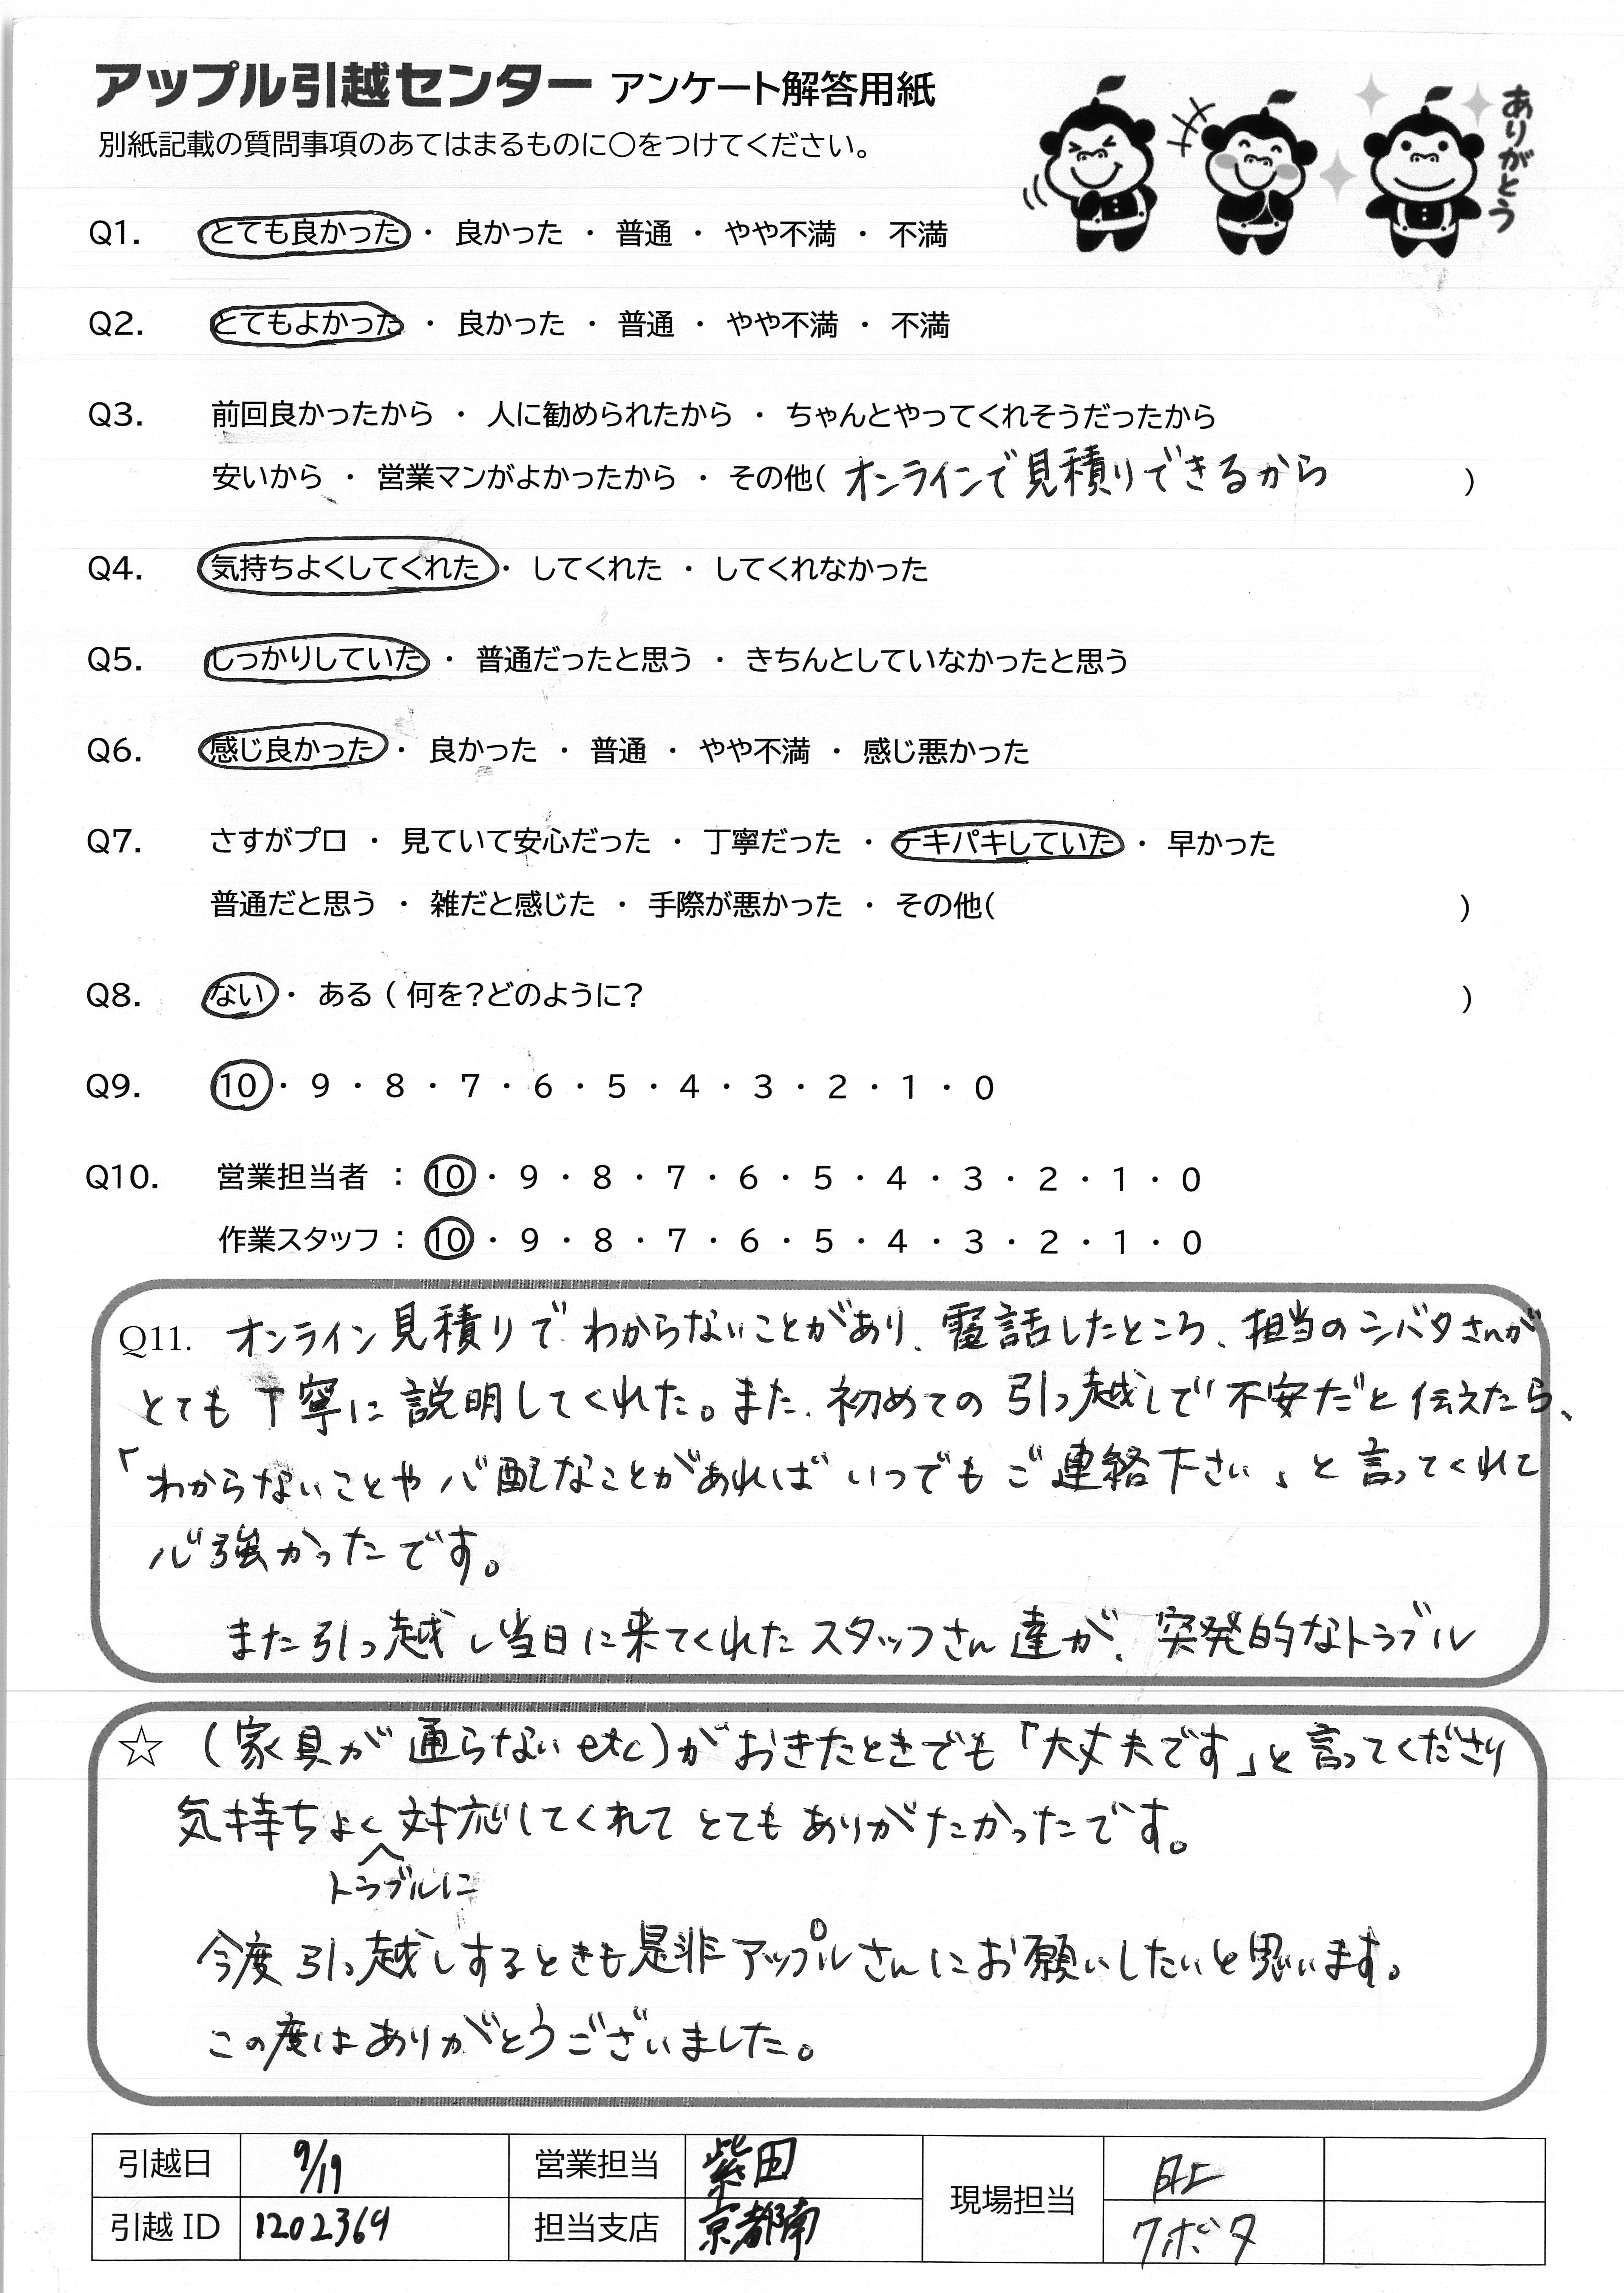 アップル引越センター アンケート解答用紙
ありがとう
別紙記載の質問事項のあてはまるものに○をつけてください。
Q1. とても良かった ・ 良かった ・ 普通 ・ やや不満 ・ 不満
Q2. とてもよかった ・ 良かった ・ 普通 ・ やや不満 ・ 不満
Q3. 前回良かったから ・ 人に勧められたから ・ ちゃんとやってくれそうだったから
安いから ・ 営業マンがよかったから ・ その他( オンラインで見積りできるから )
Q4. 気持ちよくしてくれた ・ してくれた ・ してくれなかった
Q5. しっかりしていた ・ 普通だったと思う ・ きちんとしていなかったと思う
Q6. 感じ良かった ・ 良かった ・ 普通 ・ やや不満 ・ 感じ悪かった
Q7. さすがプロ ・ 見ていて安心だった ・ 丁寧だった ・ テキパキしていた ・ 早かった
普通だと思う ・ 雑だと感じた ・ 手際が悪かった ・ その他( )
Q8. ない ・ ある ( 何を?どのように? )
Q9. 10 ・ 9 ・ 8 ・ 7 ・ 6 ・ 5 ・ 4 ・ 3 ・ 2 ・ 1 ・ 0
Q10. 営業担当者 : 10 ・ 9 ・ 8 ・ 7 ・ 6 ・ 5 ・ 4 ・ 3 ・ 2 ・ 1 ・ 0
作業スタッフ : 10 ・ 9 ・ 8 ・ 7 ・ 6 ・ 5 ・ 4 ・ 3 ・ 2 ・ 1 ・ 0
Q11. オンライン見積りでわからないことがあり、電話したところ、担当のシバタさんが
とても丁寧に説明してくれた。また、初めての引っ越しで不安だと伝えたら、
「わからないことや心配なことがあればいつでもご連絡下さい」と言ってくれて
心強かったです。
また引っ越し当日に来てくれたスタッフさん達が、突発的なトラブル
☆ (家具が通らないetc)がおきたときでも「大丈夫です」と言ってくださり
気持ちよく対応してくれてとてもありがたかったです。
トラブルに
今度引っ越しするときも是非アップルさんにお願いしたいと思います。
この度はありがとうございました。
引越日 9/19 営業担当 紫田 現場担当
引越ID 1202369 担当支店 京都南 クボタ